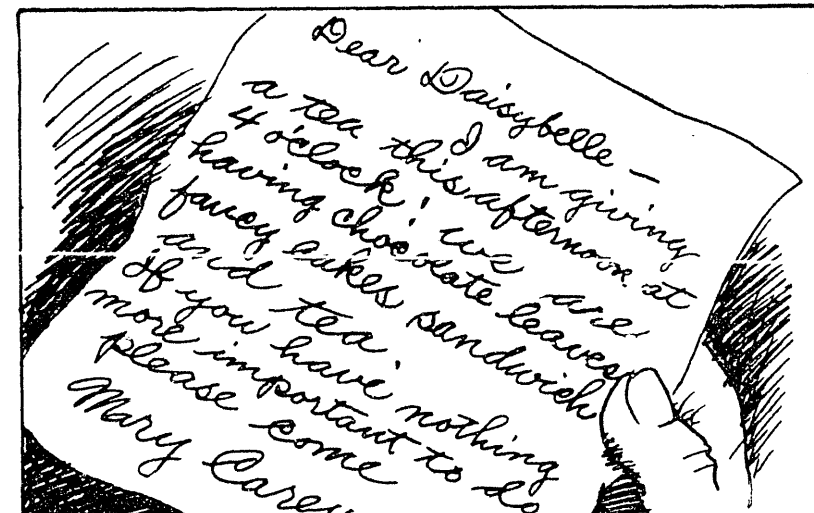 Dear Daisybelle —
I am giving
a tea this afternoon at
4 o'clock! we are
having chocolate leaves
fancy cakes sandwich
and tea.
If you have nothing
more important to do
please come
Mary Carey